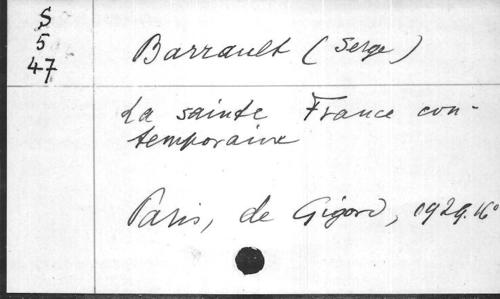 S
5
47
Barrault (Serge)
La sainte France con-
temporaine
Paris, de Gigord, 1929. 16°